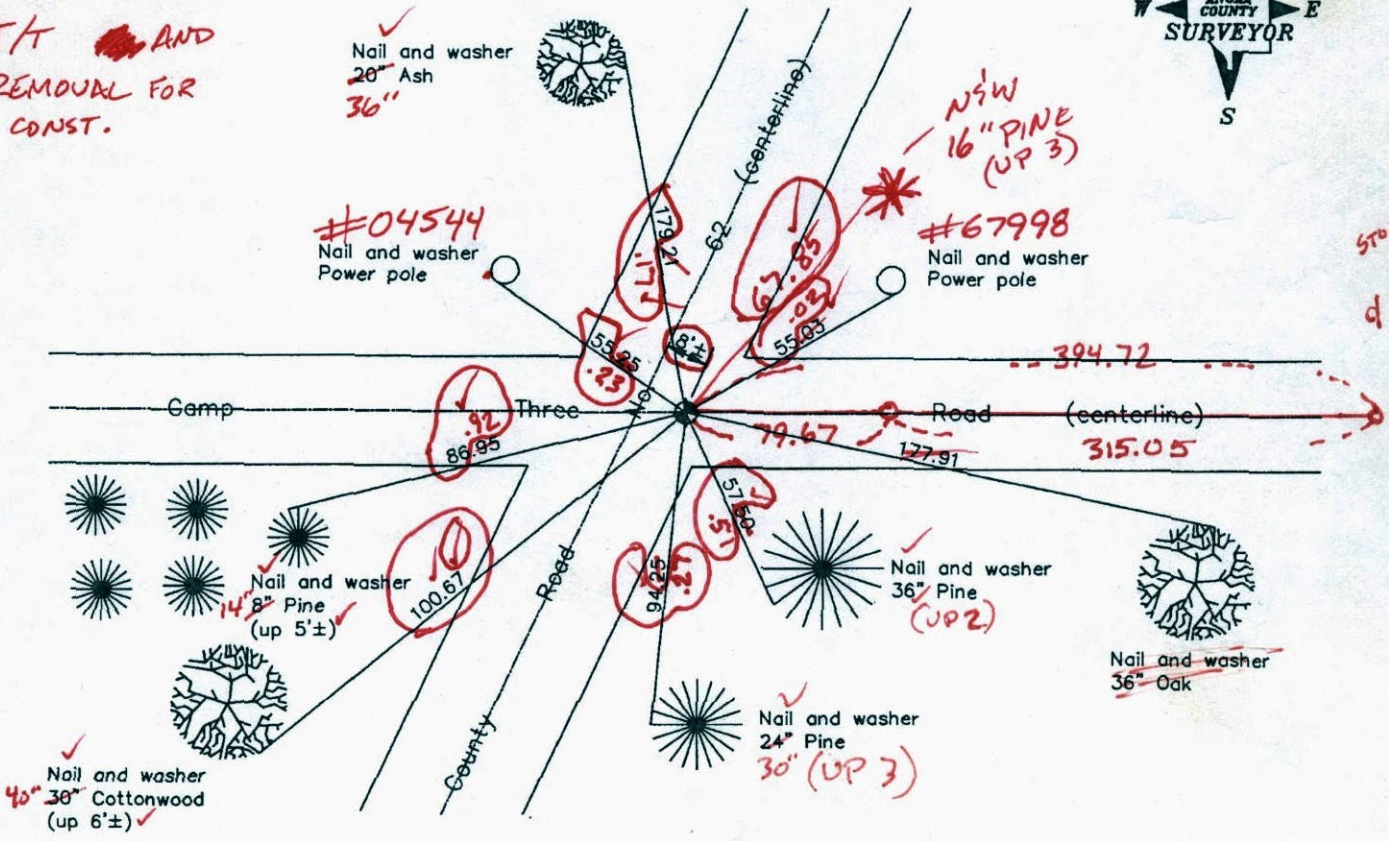 T/T AND
REMOVAL FOR
CONST.
Nail and washer
20" Ash
36"
W
COUNTY
E
SURVEYOR
S
NEW
16" PINE
(UP 3)
#04544
Nail and washer
Power pole
#67998
Nail and washer
Power pole
179.21
.17
62
(centerline)
67.85
.02
55.03
55.25
.23
8'±
394.72
Camp
Three
No.
Road
(centerline)
.92
86.95
79.67
177.91
315.05
57.50
.51
94.25
.27
100.67
Nail and washer
14" 8" Pine
(up 5'±)
Road
County
Nail and washer
36" Pine
(UP 2)
Nail and washer
36" Oak
Nail and washer
24" Pine
30" (UP 3)
Nail and washer
40" 30" Cottonwood
(up 6'±)